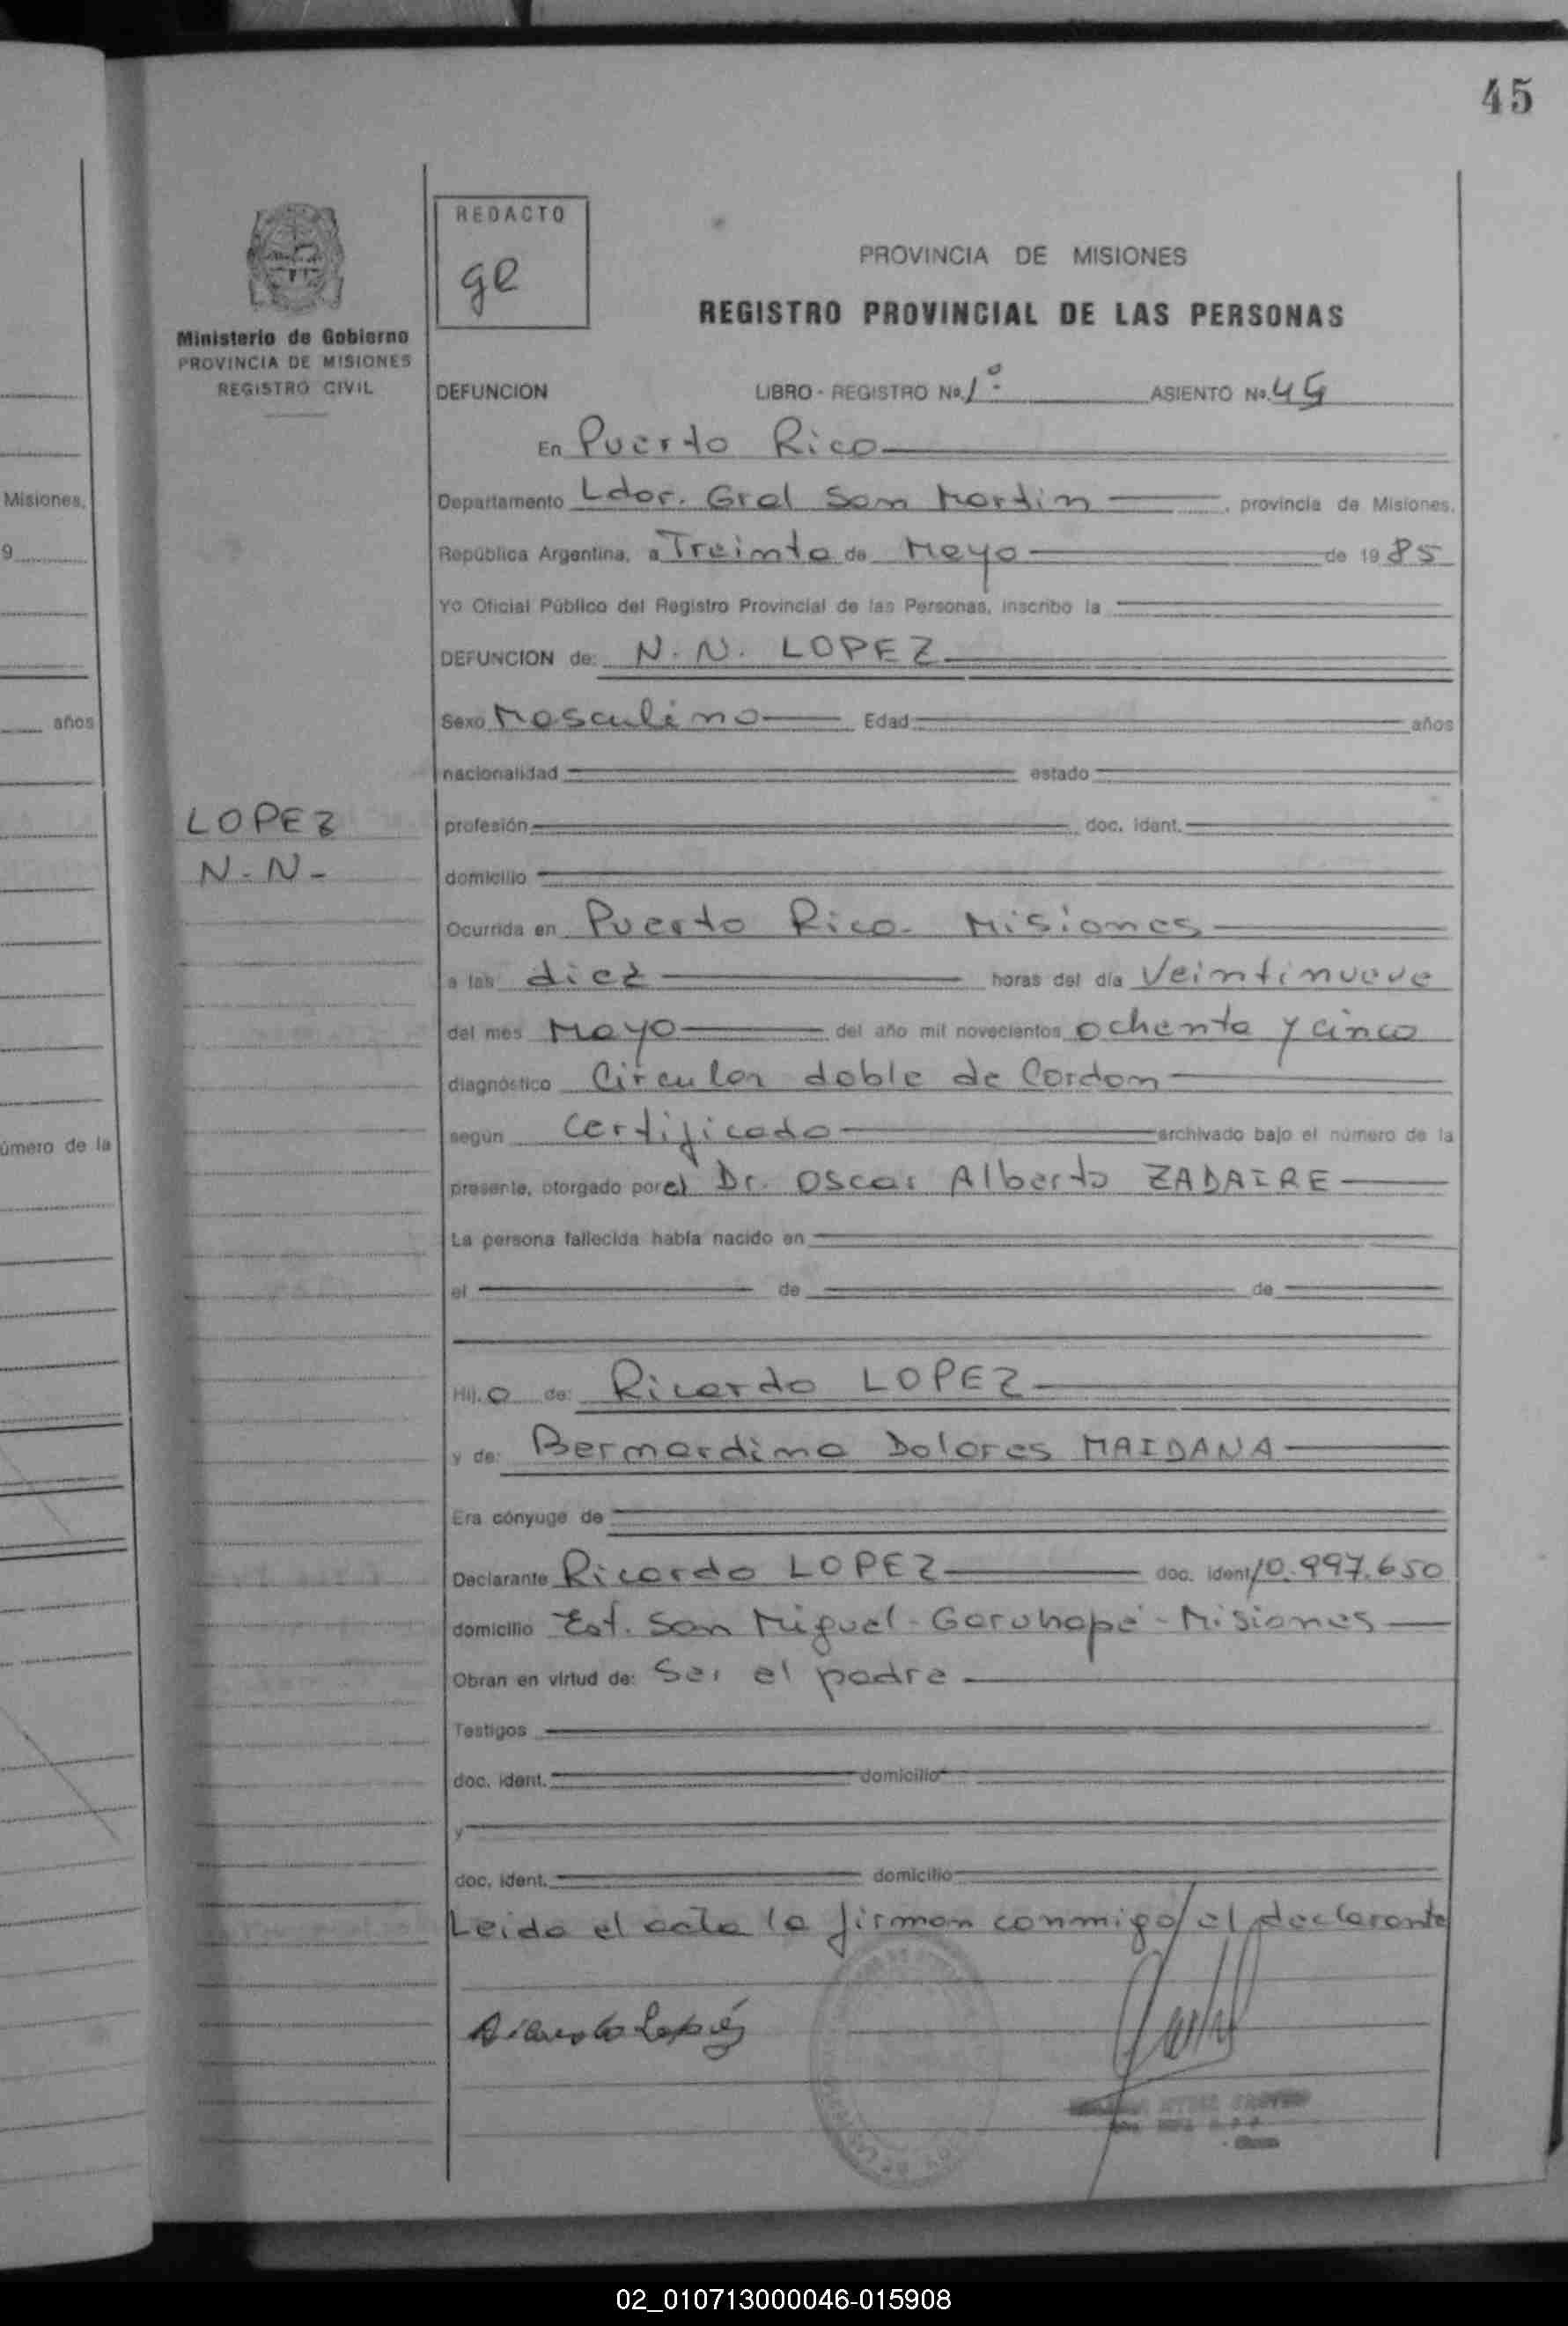 45
REDACTO
ge
PROVINCIA DE MISIONES
REGISTRO PROVINCIAL DE LAS PERSONAS
Ministerio de Gobierno
PROVINCIA DE MISIONES
REGISTRO CIVIL
DEFUNCION LIBRO - REGISTRO No. 1º ASIENTO No. 45
En Puerto Rico
Departamento Ldor. Gral San Martin, provincia de Misiones,
República Argentina, a Treinta de Mayo de 1985
Yo Oficial Público del Registro Provincial de las Personas, inscribo la
DEFUNCION de: N. N. LOPEZ
Sexo Masculino Edad años
nacionalidad estado
LOPEZ
N-N-
profesión doc. ident.
domicilio
Ocurrida en Puerto Rico - Misiones
a las diez horas del día Veintinueve
del mes Mayo del año mil novecientos ochenta y cinco
diagnóstico Circular doble de Cordon
según Certificado archivado bajo el número de la
presente, otorgado por el Dr. Oscar Alberto ZADAIRE
La persona fallecida había nacido en
el de de
Hij.o de: Ricardo LOPEZ
y de: Bernardina Dolores MAIDANA
Era cónyuge de
Declarante Ricardo LOPEZ doc. ident 10.997.650
domicilio Est. San Miguel - Garuhapé - Misiones
Obran en virtud de: Ser el padre
Testigos
doc. ident. domicilio
y
doc. ident. domicilio
Leida el acta la firman conmigo el declarante
Ricardo Lopéz
Misiones,
9
años
úmero de la
02_010713000046-015908